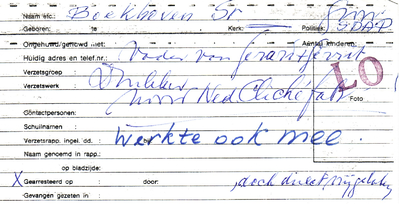 Naam enz.: Boekhoven Sr
Geboren: te Kerk: Politiek: SDAP
Ongehuwd/gehuwd met: Aantal kinderen:
Huidig adres en telef.nr.: Vader van
Verzetsgroep
Verzetswerk Drukker
voor Ned Cliché fabr
LO
Foto
Contactpersonen:
Schuilnamen:
Verzetsrapp. ingel. dd.: Werkte ook mee.
Naam genoemd in rapp.:
op bladzijde:
X Gearresteerd op door: , doch direct vrijgelaten
Gevangen gezeten in :